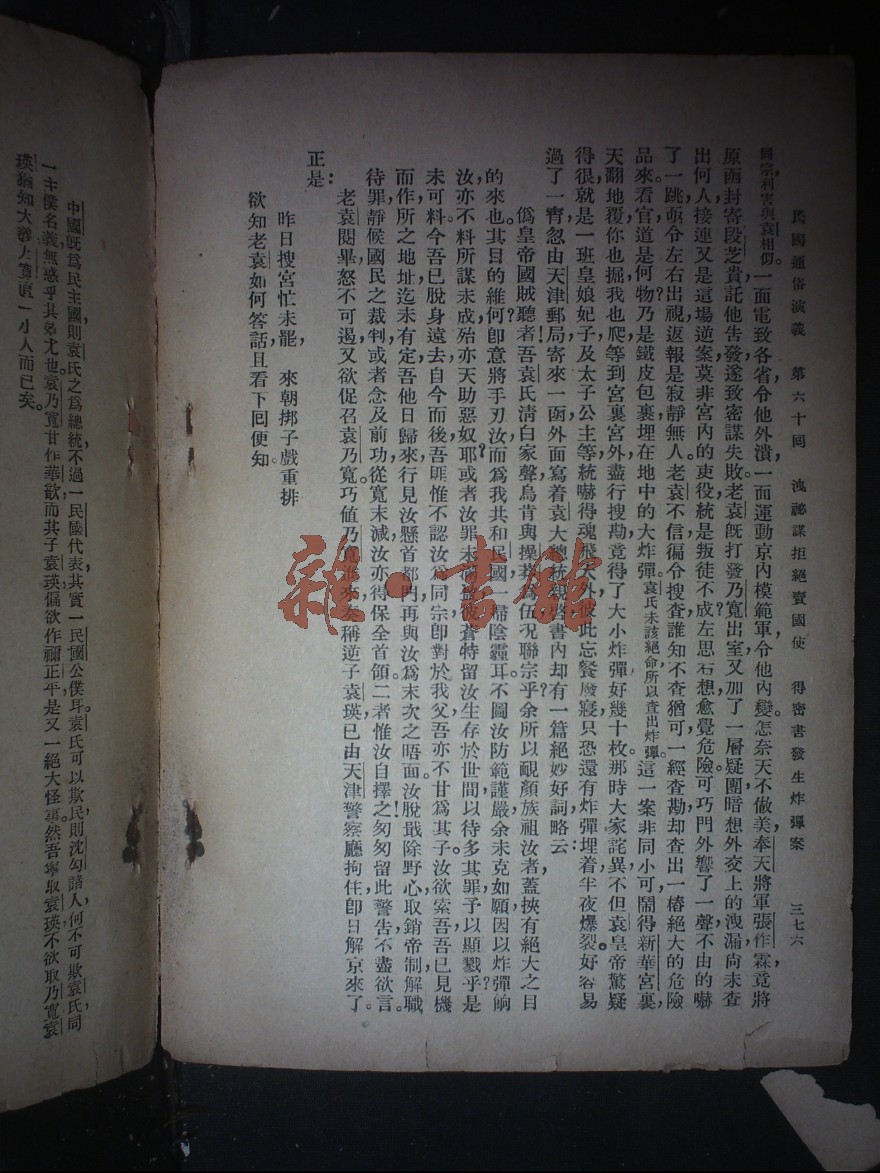 民國通俗演義　第六十回　洩祕謀拒絕賣國使　得密書發生炸彈案　三七六
同宗利害與袁相似。一面電致各省，令他外潰，一面運動京內模範軍，令他內變。怎奈天不做美，奉天將軍張作霖，竟將
原函封寄段芝貴，託他告發，遂致密謀失敗。老袁旣打發乃寬出室，又加了一層疑團，暗想外交上的洩漏，尚未查
出何人接連又是這場逆案，莫非宮內的吏役，統是叛徒不成，左思右想，愈覺危險，可巧門外響了一聲，不由的嚇
了一跳，亟令左右出視，返報是寂靜無人。老袁不信，徧令搜查，誰知不查猶可，一經查勘，却查出一樁絕大的危險
品來。看官道是何物？乃是鐵皮包裹埋在地中的大炸彈。袁氏未該絕命，所以查出炸彈。這一案非同小可，鬧得新華宮裏，
天翻地覆，你也掘，我也爬，等到宮裏宮外，盡行搜勘，竟得了大小炸彈好幾十枚。那時大家詫異，不但袁皇帝驚疑
得很，就是一班皇娘妃子，及太子公主等，統嚇得魂飛天外，彼此忘餐廢寢，只恐還有炸彈埋着，半夜爆裂。好容易
過了一宵，忽由天津郵局，寄來一函，外面寫着袁大總統親啓，書內却有一篇絕妙好詞，略云：
僞皇帝國賊聽者！吾袁氏清白家聲，烏肯與操莽爲伍，况聯宗乎？余所以靦顏族祖汝者，蓋挾有絕大之目
的來也。其目的維何？卽意將手刃汝，而爲我共和民國，一掃陰霾耳。不圖汝防範謹嚴，余未克如願，因以炸彈餉
汝，亦不料所謀未成，殆亦天助惡奴耶？或者汝罪未滿盈，彼蒼特留汝生存於世間，以待多其罪，予以顯戮乎？是
未可料。今吾已脫身遠去，自今而後，吾匪惟不認汝爲同宗，卽對於我父，吾亦不甘爲其子。汝欲索吾，吾已見機
而作，所之地址，迄未有定。吾他日歸來，行見汝懸首都門，再與汝爲末次之晤面。汝脫戢除野心，取銷帝制，解職
待罪，靜候國民之裁判，或者念及前功，從寬末減，汝亦得保全首領。二者惟汝自擇之！匆匆留此警告，不盡欲言。
老袁閱畢，怒不可遏，又欲促召袁乃寬，巧值乃寬進來，奏稱逆子袁瑛，已由天津警察廳拘住，卽日解京來了。
正是：
昨日搜宮忙未罷，　來朝挪子戲重排
欲知老袁如何答話，且看下回便知。
中國旣爲民主國，則袁氏之爲總統，不過一民國代表，其實一民國公僕耳。袁氏可以欺民，則沈勾諸人，何不可欺袁氏，同
一主僕名義，無惑乎其效尤也。袁乃寬甘作華歆，而其子袁瑛，偏欲作禰正平，是又一絕大怪事。然吾寧取袁瑛，不欲取乃寬，袁
瑛猶知大義，乃寬眞一小人而已矣。
雜·書館